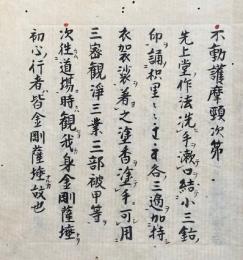 不動護摩頸次第
先上堂作法洗手漱口結小三鈷
印誦枳里〻〻各三遍加持
衣袈裟著之塗香塗手可用
三密觀淨三業三部被甲等
次往道場時觀我身金剛薩埵
初心行者皆金剛薩埵故也